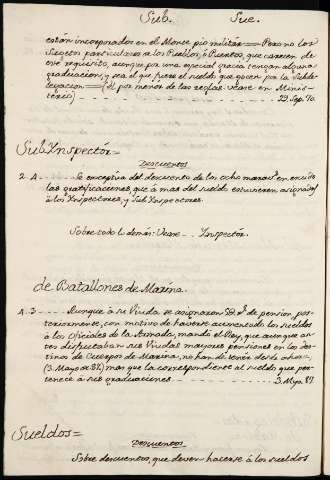 Sub. Sue.
están incorporados en el Monte pio militar = Pero no los
Sugetos particulares de los Pueblos, ò Puertos, que carecen de
ese requisito, aunque por una especial gracia tengan alguna
graduacion, y sea el que fuere el sueldo que gocen por la Subde-
legacion = (El por menor de las reglas. Vease en Minis-
terio) 23. Sep. 70.
SubYnspectór =
Descuentos
2. A. Se exceptúa del descuento de los ocho maravs. en escudo
las gratificaciones que à mas del sueldo estuvieren asignadas
à los Ynspectores, y SubYnspectores.
Sobre todo lo demás: Vease Ynspectór.
de Batallones de Marina.
A. 3 Aunque à su Viuda se asignaron de pension, pos-
teriormente, con motivo de haverse aumentado los sueldos
à los Oficiales de la Armada, mandó el Rey, que aunque an-
tes disfrutaban sus Viudas mayores pensiones en los des-
tinos de Cuerpos de Marina, no han de tenér desde ahora,
(3. Mayo de 87.) mas que la correspondiente al sueldo que per-
tenece à sus graduaciones 3. Myo. 87.
Sueldos =
Descuentos
Sobre descuentos, que deven hacerse à los sueldos